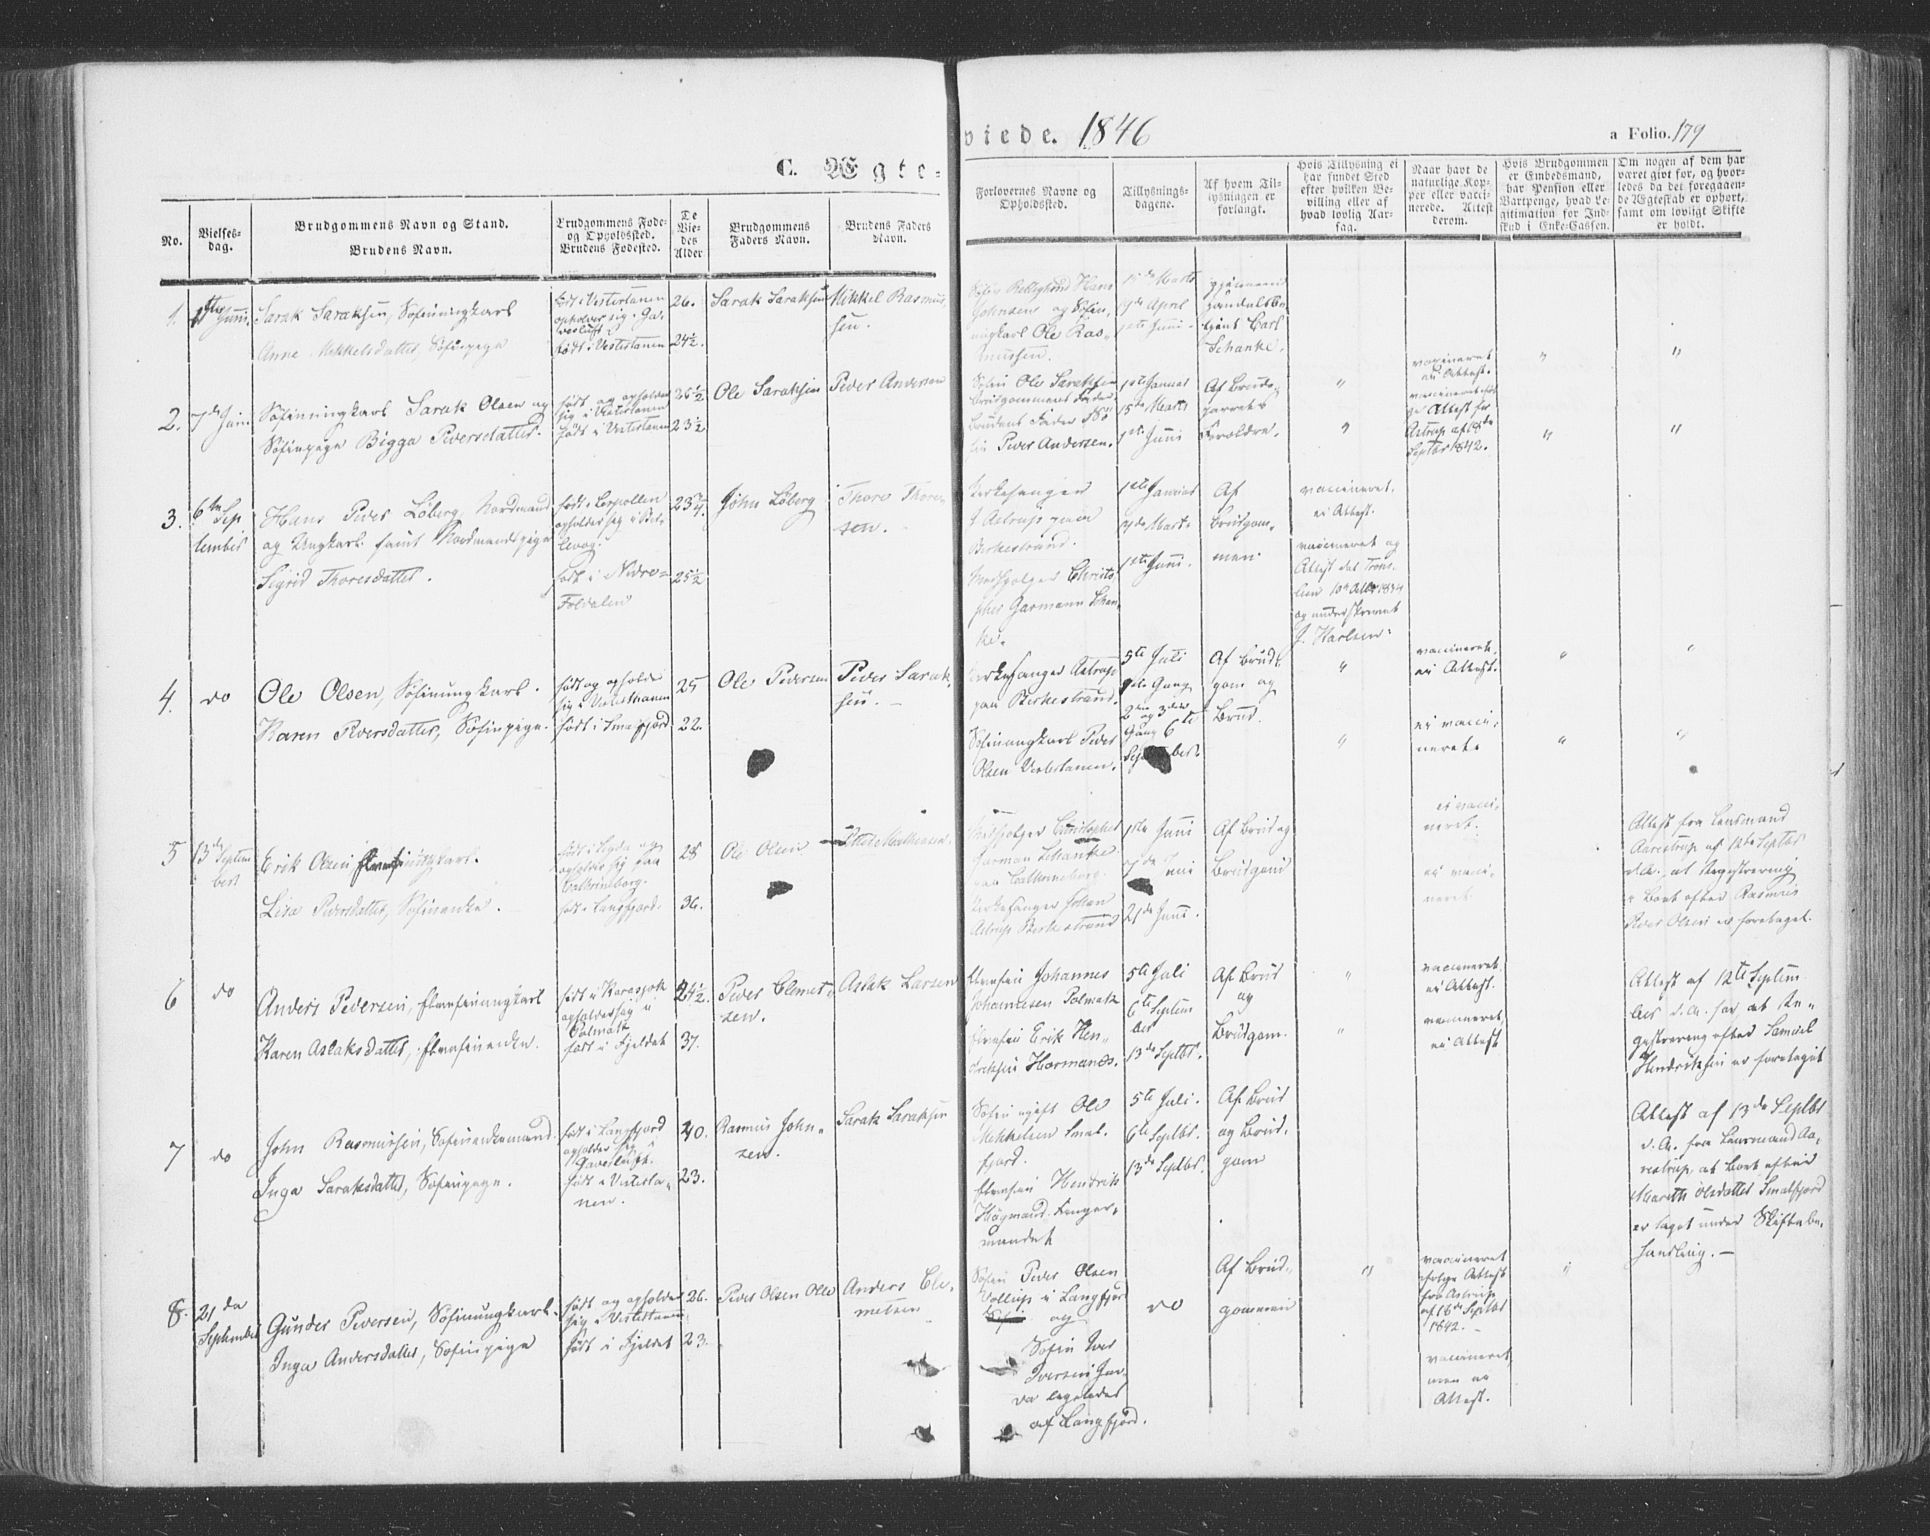 C. Ægte-
viede. 1846
a Folio. 179
No.
Vielses-
dag.
Brudgommens Navn og Stand.
Brudens Navn.
Brudgommens Føde-
og Opholdssted.
Brudens Fødested.
De
Vie-
des
Alder
Brudgommens
Faders Navn.
Brudens Faders
Navn.
Forlovernes Navne og
Opholdssted.
Tillysnings-
dagene.
Af hvem Til-
lysningen er
forlangt.
Hvis Tillysning ei
har fundet Sted
efter hvilken Be-
villing eller af
hvad lovlig Aar-
sag.
Naar havt de
naturlige Kop-
per eller vacci-
nerede. Attest
derom.
Hvis Brudgommen
er Embedsmand,
har Pension eller
Vartpenge, hvad Le-
gitimation for Ind-
skud i Enke-Cassen.
Om nogen af dem har
været givt før, og hvor-
ledes da det foregaaen-
de Ægteskab er ophørt,
samt om lovligt Skifte
er holdt.
1.
1ste Juni.
Sarak Saraksen, Søfinungkarl
Anne Mikkelsdatter, Søfinpige
født i Vestertanen
opholder sig i Ga-
vesluft
født i Vestertanen
26.
24½.
Sarak Saraksen
Mikkel Rasmus-
sen.
Johnsen og Søfin-
ungkarl Ole Ras-
mussen.
1ste Marts
19de April
1ste Juni.
Handelsbe-
tjent Carl
Schanke.
2.
7de Juni
Søfinungkarl Sarak Olsen og
Søfinpige Bigga Pedersdatter.
født og opholder
sig i Vestertanen
født i Vestertanen
26½
23½
Ole Saraksen
Peder Andersen
Søfin Ole Saraksen
Brudgommens Fader
Brudens Fader Sø-
fin Peder Andersen.
1ste Januar
15de Marts
1ste Juni
Af Brude-
parrets
Forældre.
vaccineret
ei Attest.
vaccineret føl-
ge Attest fra
Astrup af 18de
Septbr 1842.
3.
6te Sep
tember
Hans Peder Løberg, Nordmand
og Ungkarl samt Nordmandspige
Sigrid Thoresdatter.
født i Leerpollen
opholder sig i Stat-
levog.
født i Nedre-
Foldalen
23¾
25½
John Løberg
Thore Thore-
sen.
Kirkesanger
J. Astrup paa
Birkestrand.
Medhjelper Christo-
pher Garmann Schan-
ke.
1ste Januar
1ste Juni.
Af
Brudgom-
men.
vaccineret.
ei Attest.
vaccineret og
J. Karlsen.
4.
do
Ole Olsen, Søfinungkarl.
Karen Pedersdatter, Søfinpige.
født og opholder
sig i Vestertanen
født i Smalfjord
25
22.
Ole Pedersen
Peder Sarak-
sen.
Kirkesanger Astrup
paa Birkestrand
Søfinungkarl Peder
Olsen Vestertanen.
5te Juli
1ste Gang
2den og 3die
Gang 6te
September.
Af Brud-
gom og
Brud.
vaccineret,
ei Attest.
ei vacci-
neret.
5
13de Septem
ber
Erik Olsen Elvefinungkarl.
Lisa Pedersdatter, Søfinenke.
opholder sig paa
Cathrineborg.
født i Langfjord.
28
36.
Ole Olsen
Medhjelper Christopher
Garman Schanke
paa Cathrineborg.
Kirkesanger Johan
Astrup Birkestrand
1ste Juni
21de Juni.
Af Brud og
Brudgom
ei vacci-
neret.
ei vacci-
neret
Attest fra Lensmand
Aarestrup af 12te Septbr
d.A. at Registrering
i Boet efter Rasmus
Peder Olsen er foretaget.
6
do
Anders Pedersen, Elvefinungkarl
Karen Aslaksdatter, Elvefinenke.
født i Karasjok
opholder sig i
Polmak
født i Fjeldet
24½.
37.
Peder Clemet-
sen.
Aslak Larsen
Elvefin Johannes
Johannesen Polmak
Elvefin Erik Hen-
driksen Hormands.
5te Juli
6te Septem
ber
13de Septbr.
Af Brud
og
Brudgom.
vaccineret,
ei Attest.
vaccineret,
ei Attest
Attest af 12te Septem
ber d.A. for at Re-
gistrering efter Samuel
Hendriksen er foretaget
7
do
John Rasmussen, Søfinenkemand.
Inga Saraksdatter, Søfinpige.
født i Langfjord
opholder sig i
Gavesluft.
født i Vesterta-
nen.
40.
23.
Rasmus John-
sen.
Sarak Saraksen
Søfin gift Ole
Mikkelsen Smal-
fjord.
Elvefin Hendrik
Høgmand Fanger-
mandet
5te Juli.
6te Septbr.
13de Septbr.
Af Brud
og Brud-
gom
Attest af 13de Septbr
d.A. fra Lensmand Aa-
restrup, at Boet efter
Mareth Olsdatter Smalfjord
er taget under Skiftebe-
handling.
8.
21de
September
Gunder Pedersen, Søfinungkarl.
Inga Andersdatter, Søfinpige
født og opholder
sig i Vestertanen
født i Fjeldet
26.
23.
Peder Olsen Olle
Anders Cle-
metsen
Søfin Peder Olsen
Vollup i Langfjord
og
Søfin Iver
Iversen
ligeledes
af Langfjord.
do
Af Brud-
gommen
vaccineret
følge Attest
fra Astrup
af 18de Septbr
1842.
vaccineret
men ei
Attest.